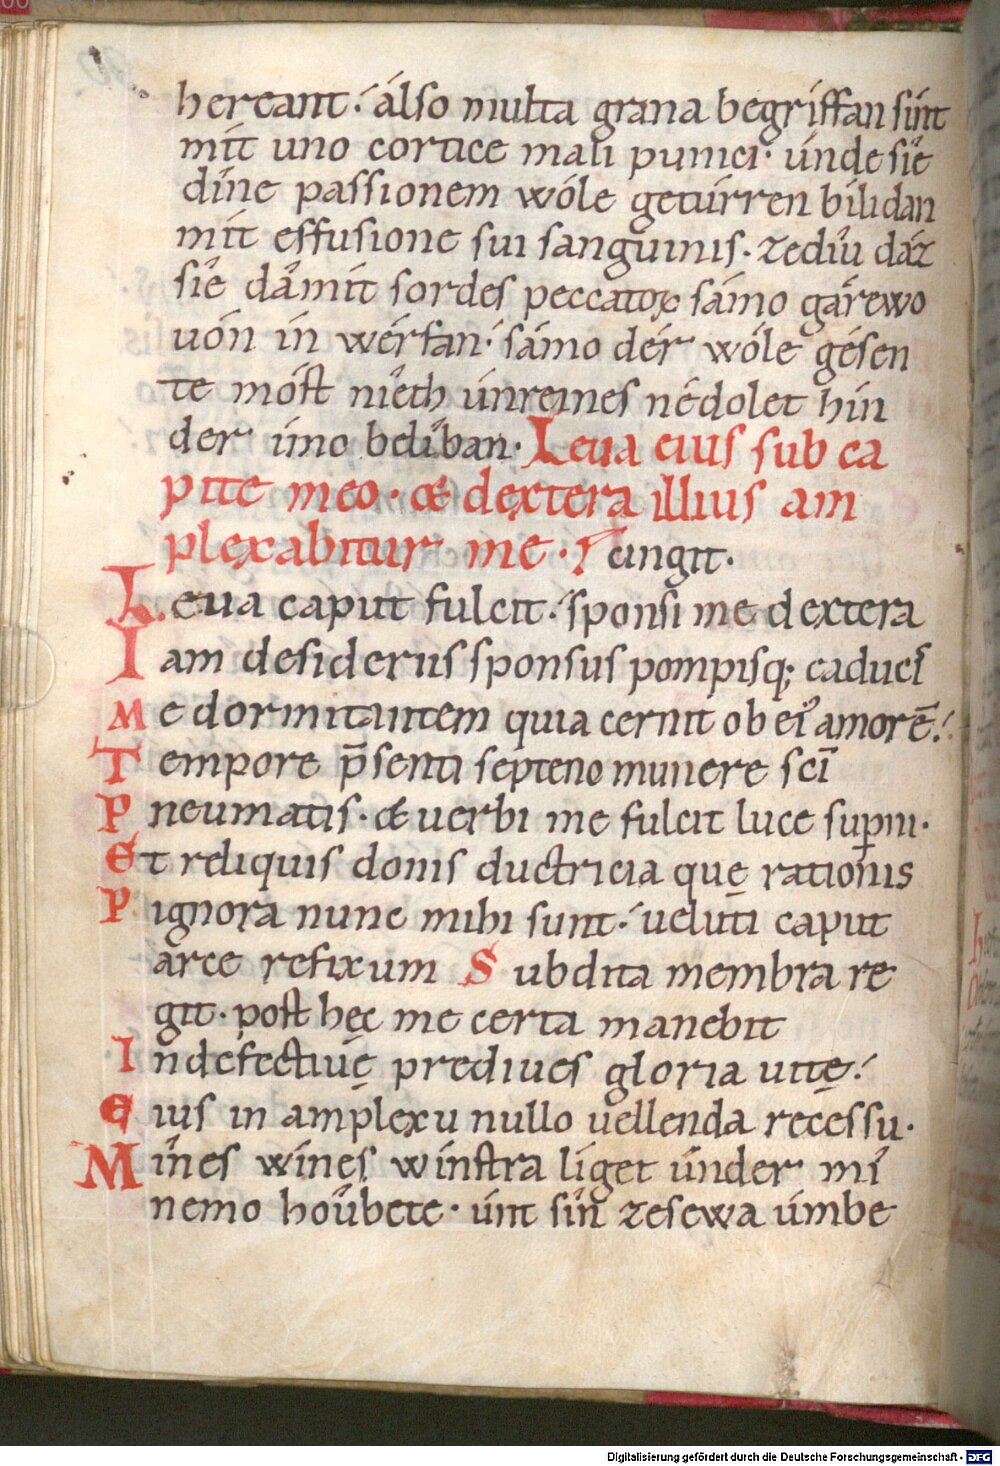 hereant· also multa grana begriffan sint
mit uno cortice mali punici· únde sie
dine passionem wóle getúrren bilidan
mit effusione sui sanguinis· zediu dáz
sie dámit sordes peccatoꝝ sámo gárewo
uón in wérfan· sámo dér wóle gésen
te móst nieth únreines nédolet hin
der imo beliban· Leua eius sub ca
pite meo· & dextera illius am
plexabitur me· cingit·
Leua caput fulcit· sponsi me dextera
Iam desideriis sponsus pompisq; caducis
Me dormitantem quia cernit ob ei᷒ amorē·
Tempore p̄senti septeno munere sc̄i
Pneumatis· & uerbi me fulcit luce sup̄ni·
Et reliquis donis ductricia quę rationis
Pignora nunc mihi sunt· ueluti caput
arce refixum Subdita membra re
git· post hęc me certa manebit
Indefectiuę prediues gloria uitę·
Eius in amplexu nullo uellenda recessu·
Mínes wines winstra liget únder mi
nemo hoúbete· únt sin zesewa úmbe
Digitalisierung gefördert durch die Deutsche Forschungsgemeinschaft - DFG